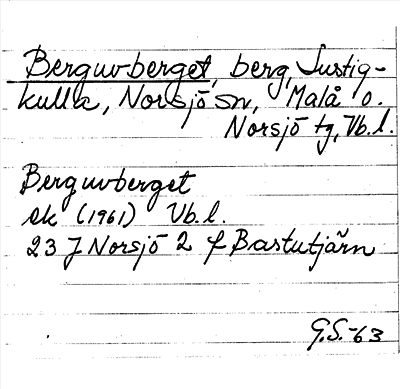 Berguvberget, berg, Lustig-
kulla, Norsjö sn, Malå o.
Norsjö tg, Vb.l.
Berguvberget
ek (1961) Vb.l.
23 J Norsjö 2 f Bastutjärn
G.S.-63